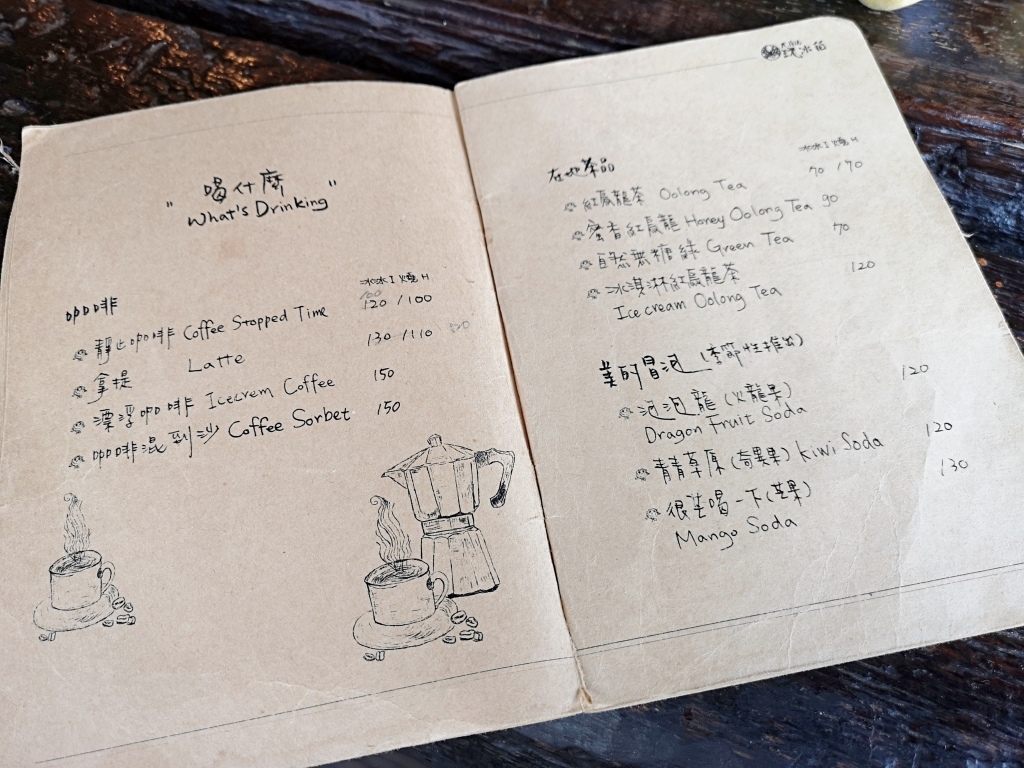 喝什麼
"What's Drinking"
咖啡 冰冰I 燒H
靜止咖啡 Coffee Stopped Time 120/100
拿提 Latte 130/110 120
漂浮咖啡 Icecrem Coffee 150
咖啡混到沙 Coffee Sorbet 150
冰箱
在地茶品 冰冰I 燒H
紅烏龍茶 Oolong Tea 70/70
蜜香紅烏龍 Honey Oolong Tea 90
自然無糖綠 Green Tea 70
冰淇淋紅烏龍茶 120
Ice cream Oolong Tea
美的冒泡(季節性推出)
泡泡龍(火龍果) 120
Dragon Fruit Soda
青青草原(奇異果) kiwi Soda 120
很芒喝一下(芒果) 130
Mango Soda